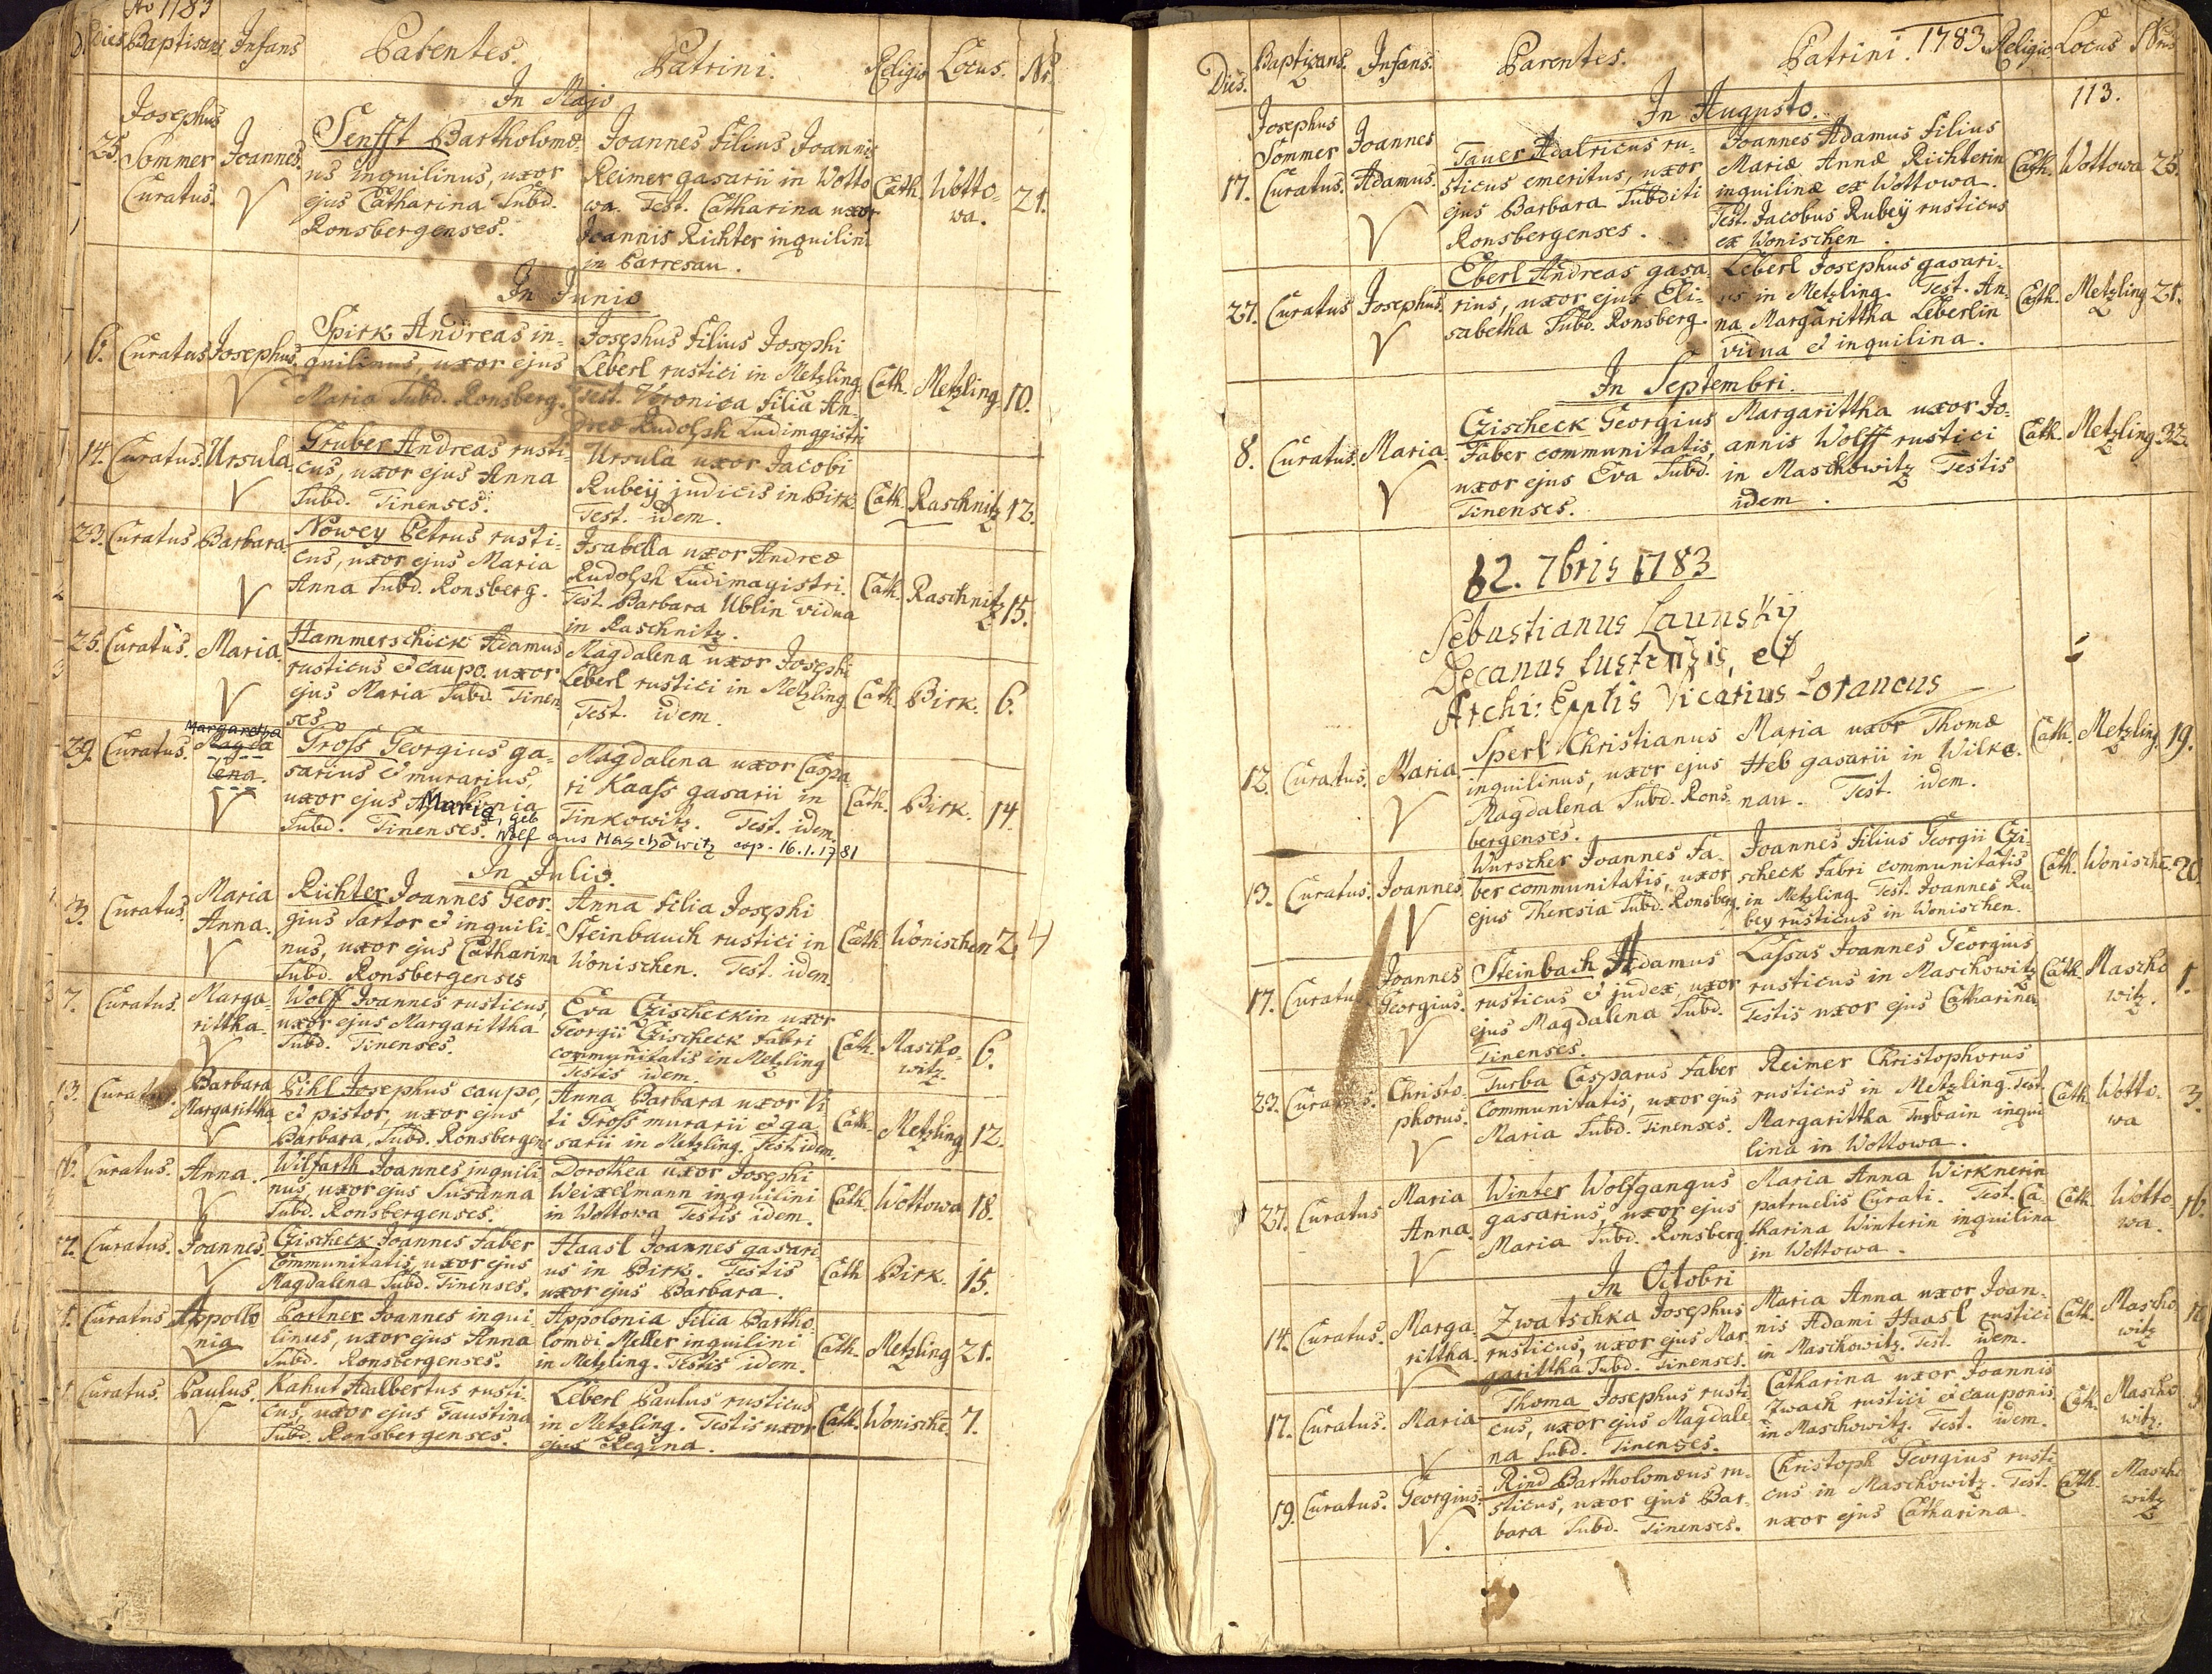 Ao 1783
Dies Baptisans Infans Parentes. Patrini. Religio Locus. Nr.
In Majo
25. Josephus Sommer Curatus. Joannes.
Senfft Bartholomæ-
us inquilinus, uxor
ejus Catharina Subd.
Ronsbergenses.
Joannes filius Joannis
Reimer gasarii in Wotto
wa. Test. Catharina uxor
Joannis Richter inquilini
in Parresau.
Cath. Wotto-
wa. 21.
In Junio
6. Curatus Josephus.
Spirk Andreas in-
quilinus, uxor ejus
Maria Subd. Ronsberg.
Josephus filius Josephi
Leberl rustici in Metzling.
Test. Veronica filia An-
dreæ Rudolph Ludimagistri
Cath. Metzling 10.
14. Curatus. Ursula.
Gruber Andreas rusti-
cus, uxor ejus Anna
Subd. Tinenses.
Ursula uxor Jacobi
Rubeÿ judicis in Birk.
Test. idem.
Cath. Raschnitz 12.
23. Curatus Barbara.
Nowey Petrus rusti-
cus, uxor ejus Maria
Anna Subd. Ronsberg.
Isabella uxor Andreæ
Rudolph Ludimagistri.
Test. Barbara Ublin vidua
in Raschnitz.
Cath. Raschnitz 15.
25. Curatus. Maria.
Hammerschick Adamus
rusticus et caupo. uxor
ejus Maria Subd. Tinen-
ses
Magdalena uxor Josephi
Leberl rustici in Metzling.
Test. idem.
Cath. Birk. 6.
Margaretha
29. Curatus. Magda
lena.
Gross Georgius ga-
sarius et murarius,
uxor ejus
Maria, geb
Subd. Tinenses. Wolf aus Maschowitz cop. 16.1.1781
Magdalena uxor Caspa-
ri Kaass gasarii in
Tinkowitz. Test. idem.
Cath. Birk. 14.
In Julio.
3. Curatus. Maria
Anna.
Richter Joannes Geor-
gius Sartor et inquili-
nus, uxor ejus Catharina
Subd. Ronsbergenses
Anna filia Josephi
Steinbauch rustici in
Wonischen. Test. idem.
Cath. Wonischen 2. 4
7. Curatus. Marga-
rittha.
Wolff Joannes rusticus,
uxor ejus Margarittha
Subd. Tinenses.
Eva Czischeckin uxor
Georgii Czischeck fabri
communitatis in Metzling
Testis idem.
Cath. Mascho-
witz. 6.
13. Curatus. Barbara
Margarittha
Pihl Josephus caupo,
et pistor, uxor ejus
Barbara, Subd. Ronsbergen:
Anna Barbara uxor Vi
ti Gross murarii et ga
sarii in Metzling. Test idem.
Cath. Metzling. 12.
16. Curatus. Anna.
Wilfarth Joannes inquili
nus, uxor ejus Susanna
Subd. Ronsbergenses.
Dorothea uxor Josephi
Weixelmann inquilini
in Wottowa Testis idem.
Cath. Wottowa 18.
17. Curatus. Joannes.
Czischeck Joannes Faber
Communitatis, uxor ejus
Magdalena Subd. Tinenses.
Haasl Joannes gasari
us in Birk. Testis
uxor ejus Barbara.
Cath Birk. 15.
Curatus Appollo
nia
Partner Joannes inqui-
linus, uxor ejus Anna
Subd. Ronsbergenses.
Appolonia filia Bartho
lomæi Meller inquilini
in Metzling. Testis idem.
Cath. Metzling 21.
Curatus. Paulus.
Kahut Adalbertus rusti-
cus, uxor ejus Faustina
Subd. Ronsbergenses.
Leberl Paulus rusticus
in Metzling. Testis uxor
ejus Regina.
Cath. Wonische. 7.
Dies. Baptisans. Infans. Parentes. Patrini. 1783. Religio Locus Nrus
113.
In Augusto.
17. Josephus Sommer Curatus. Joannes
Adamus.
Tauer Adalricus ru-
sticus emeritus, uxor
ejus Barbara Subditi
Ronsbergenses.
Joannes Adamus filius
Mariæ Annæ Richterin
inquilinæ ex Wottowa.
Test. Jacobus Rubeÿ rusticus
ex Wonischen.
Cath. Wottowa 25.
27. Curatus Josephus.
Eberl Andreas gasa-
rius, uxor ejus Eli-
sabetha Subd. Ronsberg.
Leberl Josephus gasari-
us in Metzling. Test. An-
na Margarittha Leberlin
vidua et inquilina.
Cath. Metzling 21.
In Septembri.
8. Curatus. Maria.
Czischeck Georgius
Faber communitatis,
uxor ejus Eva Subd.
Tinenses.
Margarittha uxor Jo-
annis Wolff rustici
in Maschowitz Testis
idem.
Cath. Metzling. 32.
12. 7bris 1783
Sebastianus Launskÿ
Decanus
Archi: Epplis Vicarius Foraneus
12. Curatus. Maria.
Sperl Christianus
inquilinus, uxor ejus
Magdalena Subd. Rons-
bergenses.
Maria uxor Thomæ
Heb gasarii in Wilke-
nau. Test. idem.
Cath. Metzling. 19.
13. Curatus. Joannes.
Wurscher Joannes Fa-
ber communitatis, uxor
ejus Theresia Subd. Ronsberg.
Joannes filius Georgii Czi-
scheck fabri communitatis
in Metzling. Test. Joannes Ru
bey rusticus in Wonischen.
Cath. Wonische. 20
17. Curatus Joannes
Georgius.
Steinbach Adamus
rusticus et judex, uxor
ejus Magdalena Subd.
Tinenses.
Lassas Joannes Georgius
rusticus in Maschowitz
Testis uxor ejus Catharina
Cath. Mascho
witz. 1.
23. Curatus. Christo-
phorus.
Turba Casparus Faber
Communitatis, uxor ejus
Maria Subd. Tinenses.
Reimer Christophorus
rusticus in Metzling. Test.
Margarittha Turbain inqui
lina in Wottowa.
Cath Wotto-
wa 3.
27. Curatus Maria
Anna.
Winter Wolfgangus
gasarius, uxor ejus
Maria Subd. Ronsberg.
Maria Anna Wirknerin
patruelis Curati. Test. Ca
tharina Winterin inquilina
in Wottowa.
Cath. Wotto
wa. 16.
In Octobri
14. Curatus. Marga-
rittha.
Zwatschka Josephus
rusticus, uxor ejus Mar-
garittha Subd. Tinenses.
Maria Anna uxor Joan-
nis Adami Haasl rustici
in Maschowitz. Test. idem.
Cath. Mascho
witz
17. Curatus. Maria
Thoma Josephus rusti
cus, uxor ejus Magdale
na Subd. Tinenses.
Catharina uxor Joannis
Zwach rustici et cauponis
in Maschowitz. Test. idem.
Cath. Mascho
witz.
19. Curatus. Georgius.
Rind Bartholomæus ru-
sticus, uxor ejus Bar-
bara Subd. Tinenses.
Christoph Georgius rusti
cus in Maschowitz. Test.
uxor ejus Catharina.
Cath. Mascho
witz